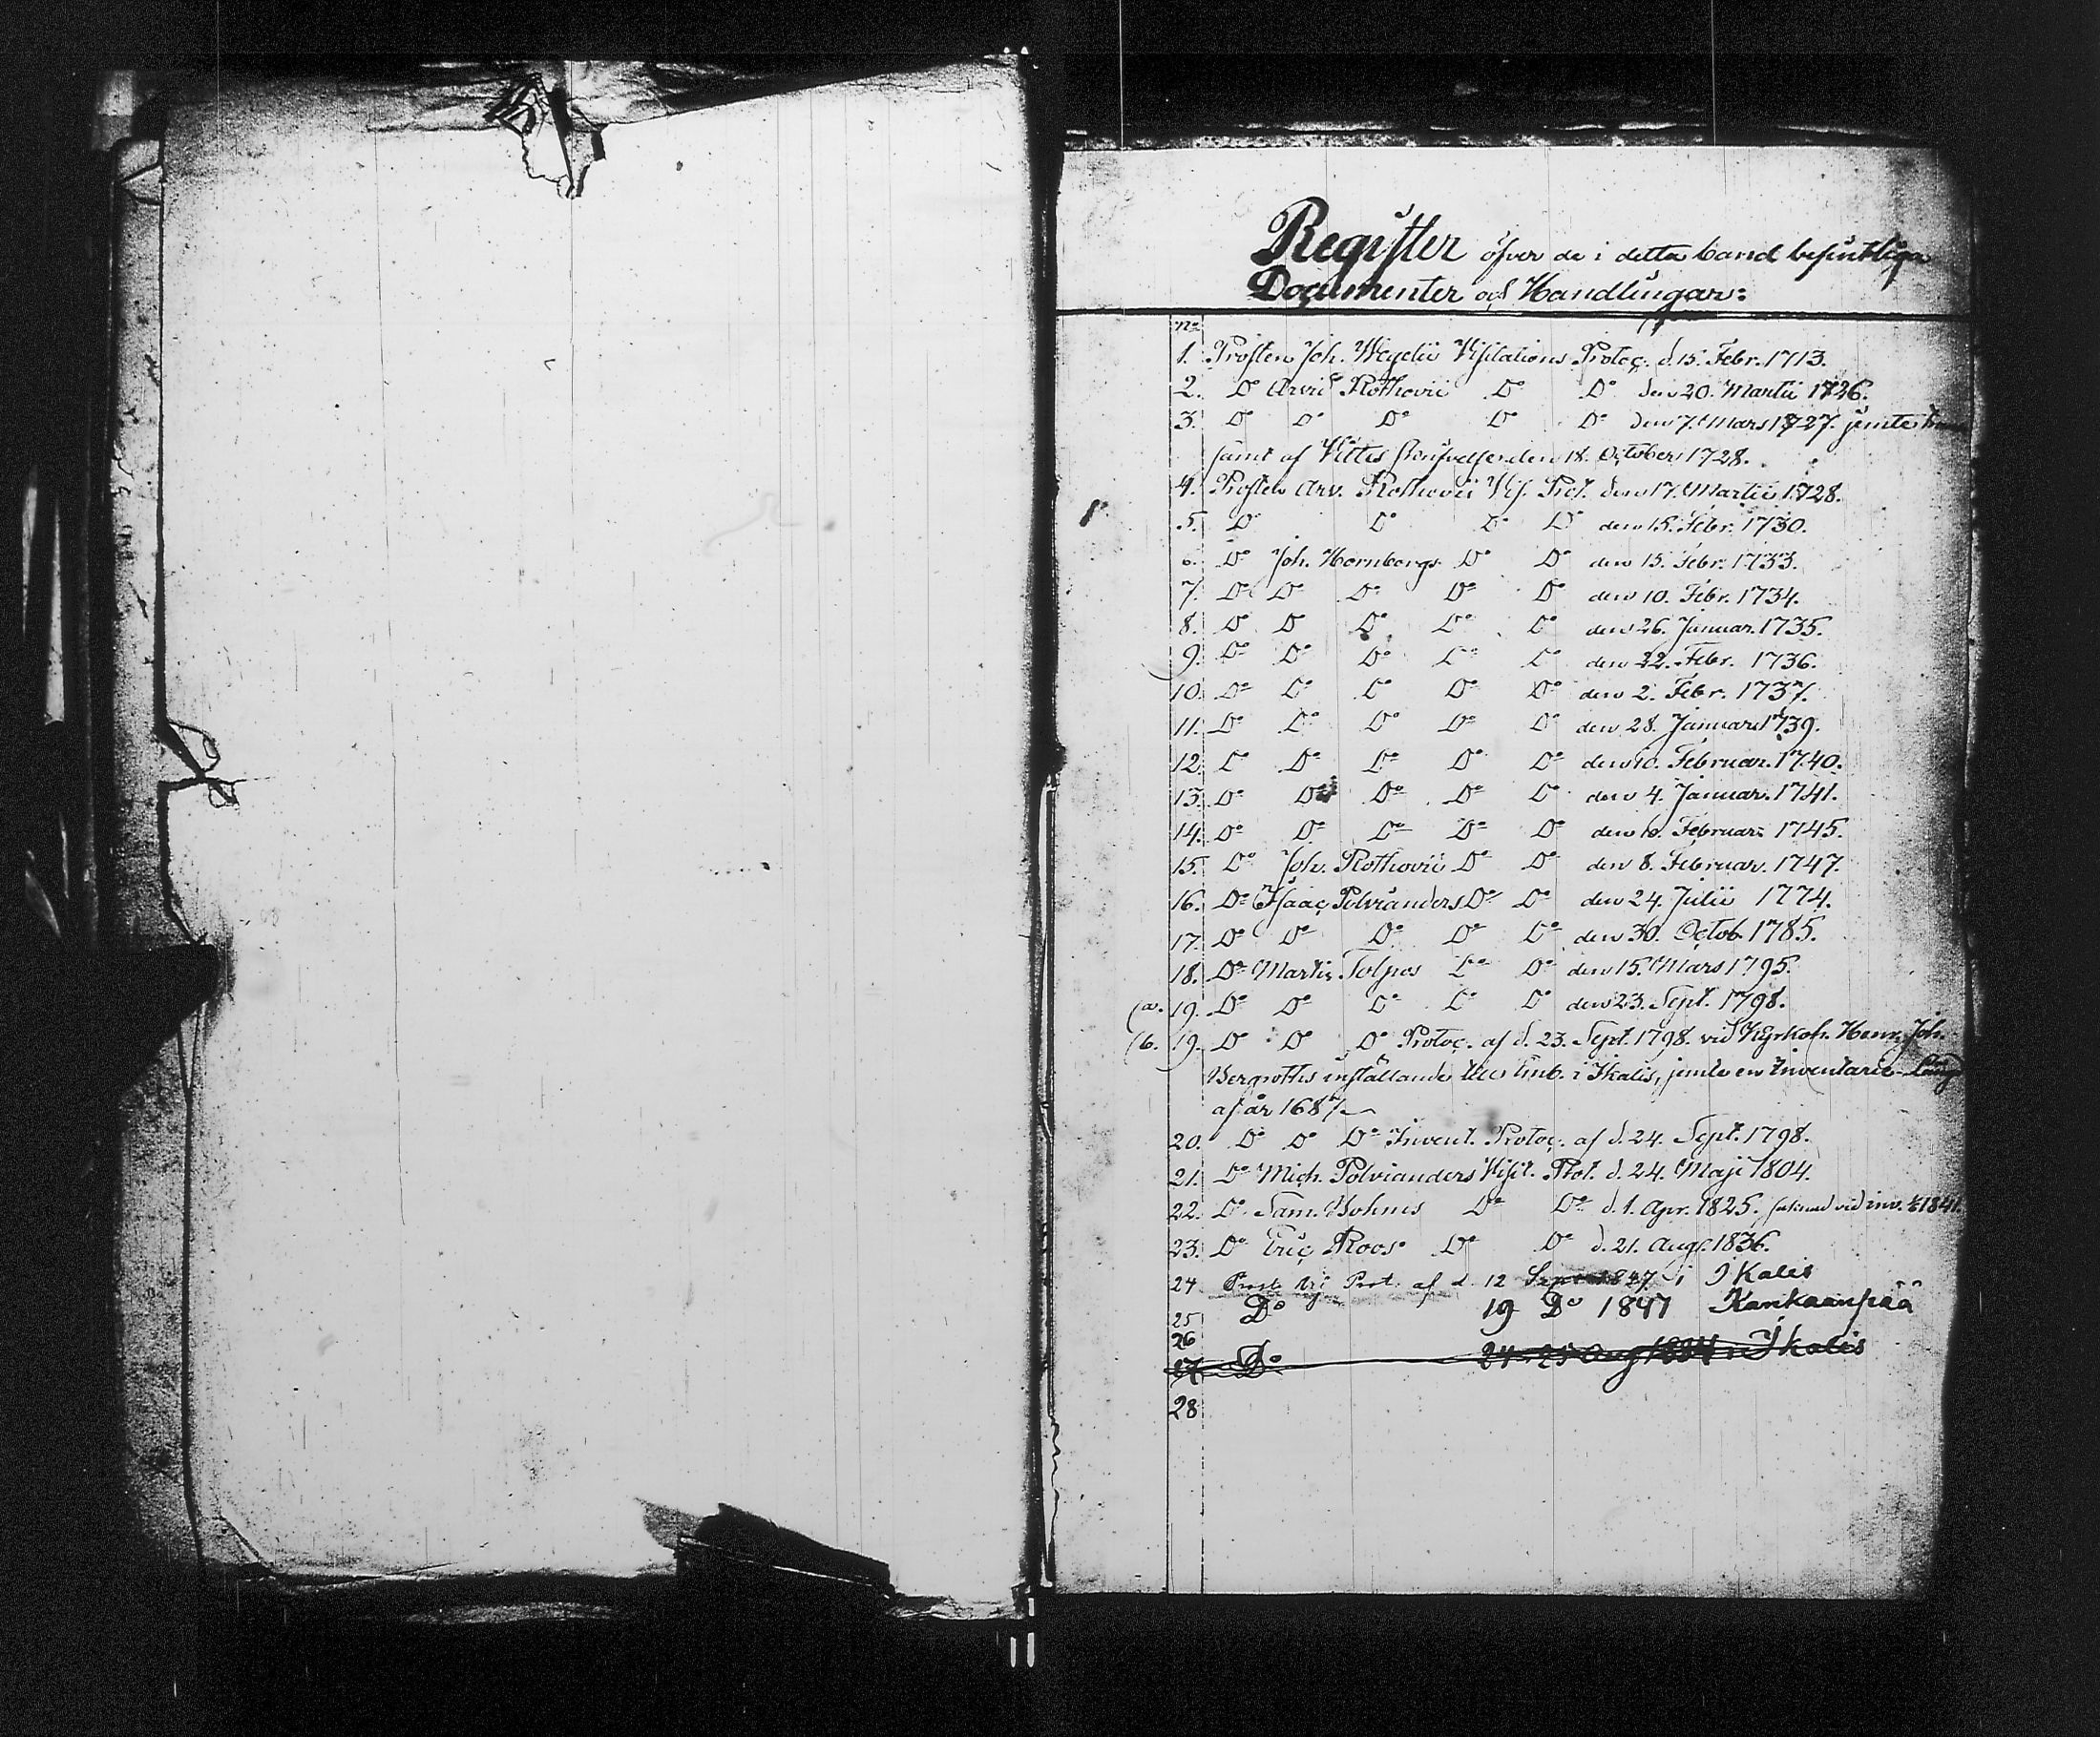 Register öfver de i detta band befintliga
Documenter och Handlingar:
No
1. Prosten Joh. Wegelii Visitations Protoc. d. 15. Febr. 1713.
2. Do Arvid Rothovii Do Do den 20. Martii 1726.
3. Do Do Do Do Do den 7. Mars 1727. jemte
samt af den 18. October 1728.
4. Prosten Arv. Rothovii Vis. Prot. den 17. Martii 1728.
5. Do Do Do Do den 15. Febr. 1730.
6. Do Joh. Hornborgs Do Do den 15. Febr. 1733.
7. Do Do Do Do Do den 10. Febr. 1734.
8. Do Do Do Do Do den 26. Januar. 1735.
9. Do Do Do Do Do den 22. Febr. 1736.
10. Do Do Do Do Do den 2. Febr. 1737.
11. Do Do Do Do Do den 28. Januari 1739.
12. Do Do Do Do Do den 10. Februar. 1740.
13. Do Do Do Do Do den 4. Januar. 1741.
14. Do Do Do Do Do den 10. Februari 1745.
15. Do Joh. Rothovii Do Do den 8. Februar. 1747.
16. Do Isaac Polvianders Do Do den 24. Julii 1774.
17. Do Do Do Do Do den 30. Octob. 1785.
18. Do Martin Tolpos Do Do den 15. Mars 1795.
(a. 19. Do Do Do Do Do den 23. Sept. 1798.
(b. 19. Do Do Do Protoc. af d. 23. Sept. 1798. vid Kyrkoh. Henr. Joh.
Bergroths inställande till Emb. i Ikalis, jemte en Inventarie-Längd
af år 1687.
20. Do Do Do Invent. Protoc. af d. 24. Sept. 1798.
21. Do Mich. Polvianders Visit. Prot. d. 24. Maji 1804.
22. Do Sam. Bohms Do Do d. 1. Apr. 1825. (saknad vid inv. 1841.
23. Do Eric Roos Do Do d. 21. Aug. 1836.
24 Prosts Vis Prot. af d. 12 Sept 1847 i Ikalis
25 Do 19 Do 1847 Kankaanpää
26
27 Do 24-25 Aug i Ikalis
28